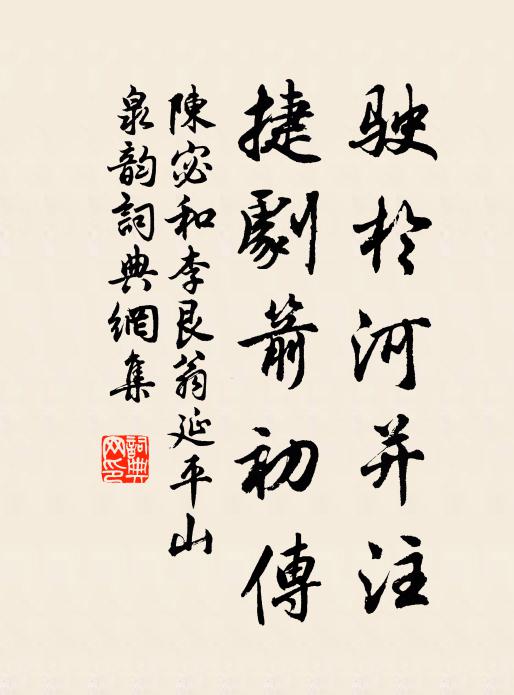 駛於河并注
捷劇箭初傳
陳宓和李艮翁延平山
泉韵詞典網集
詞典
网印